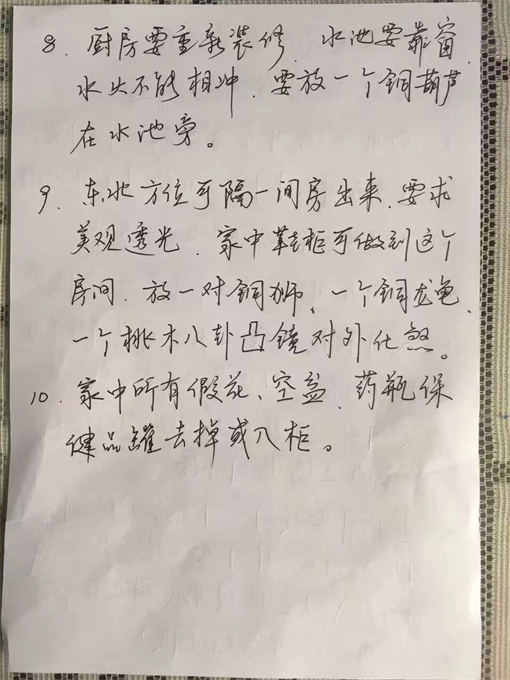 8. 厨房要重新装修, 水池要靠窗
水火不能相冲. 要放一个铜葫芦
在水池旁。
9. 东北方位可隔一间房出来. 要求
美观透光. 家中鞋柜可做到这个
房间. 放一对铜狮、一个铜龙龟
一个桃木八卦凸镜对外化煞。
10. 家中所有假花、空盆、药瓶保
健品罐去掉或入柜。